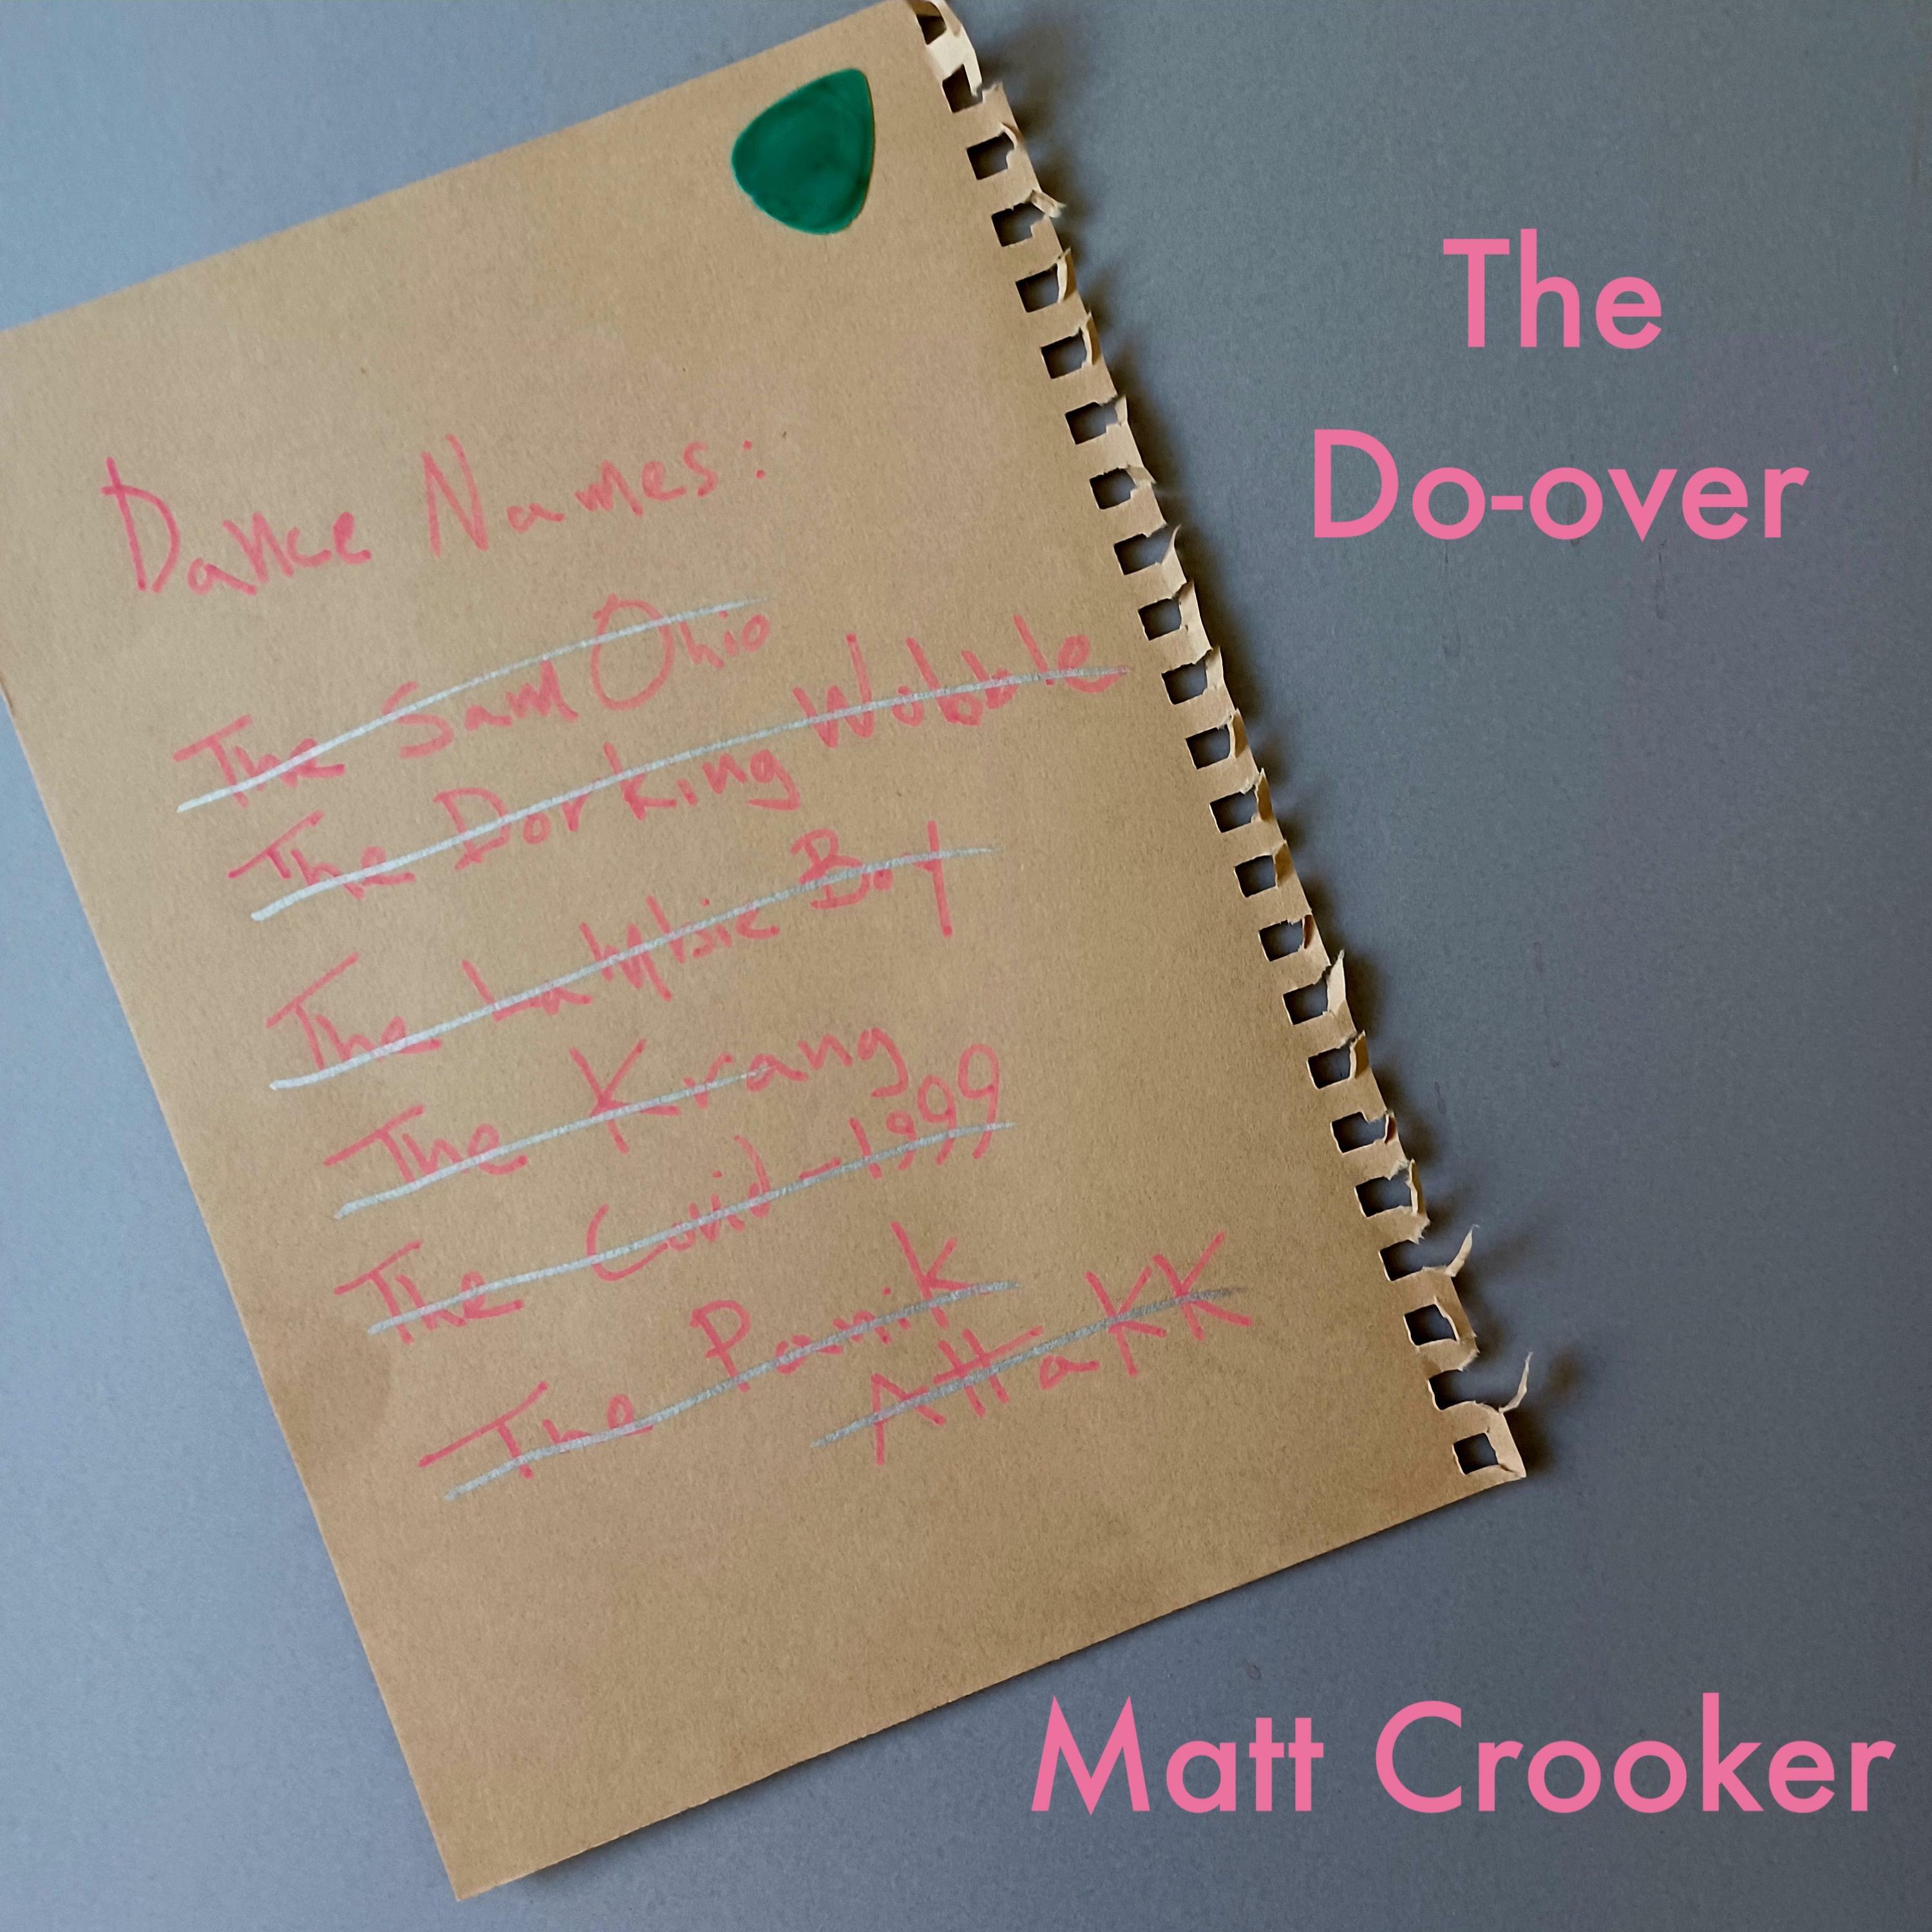 The
Do-over
Dance Names:
The Sam Ohio
The Dorking Wobble
The Lambie Boy
The Krang
The Covid-1999
The Panik
AttaKK
Matt Crooker